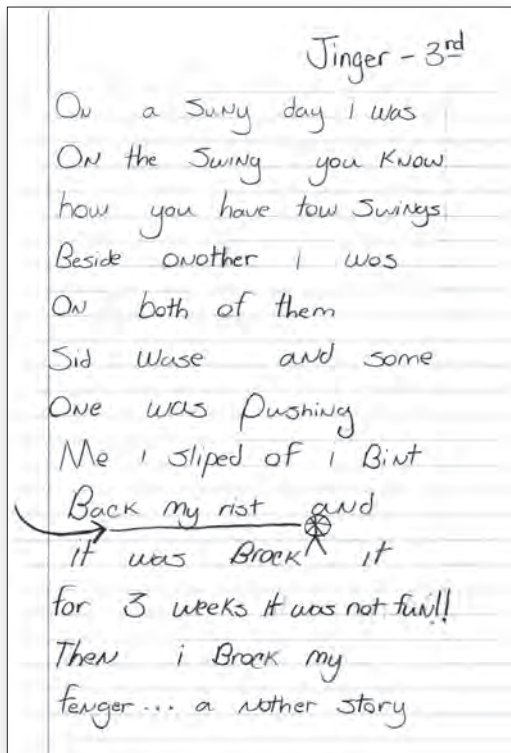 Jinger - 3rd
On a suny day i was
On the Swing you Know
how you have tow Swings
Beside onother i wos
On both of them
Sid Wase and some
One was Pushing
Me i sliped of i Bint
Back my rist and
it was Brock it
for 3 weeks it was not fun!!
Then i Brock my
fenger... a nother story